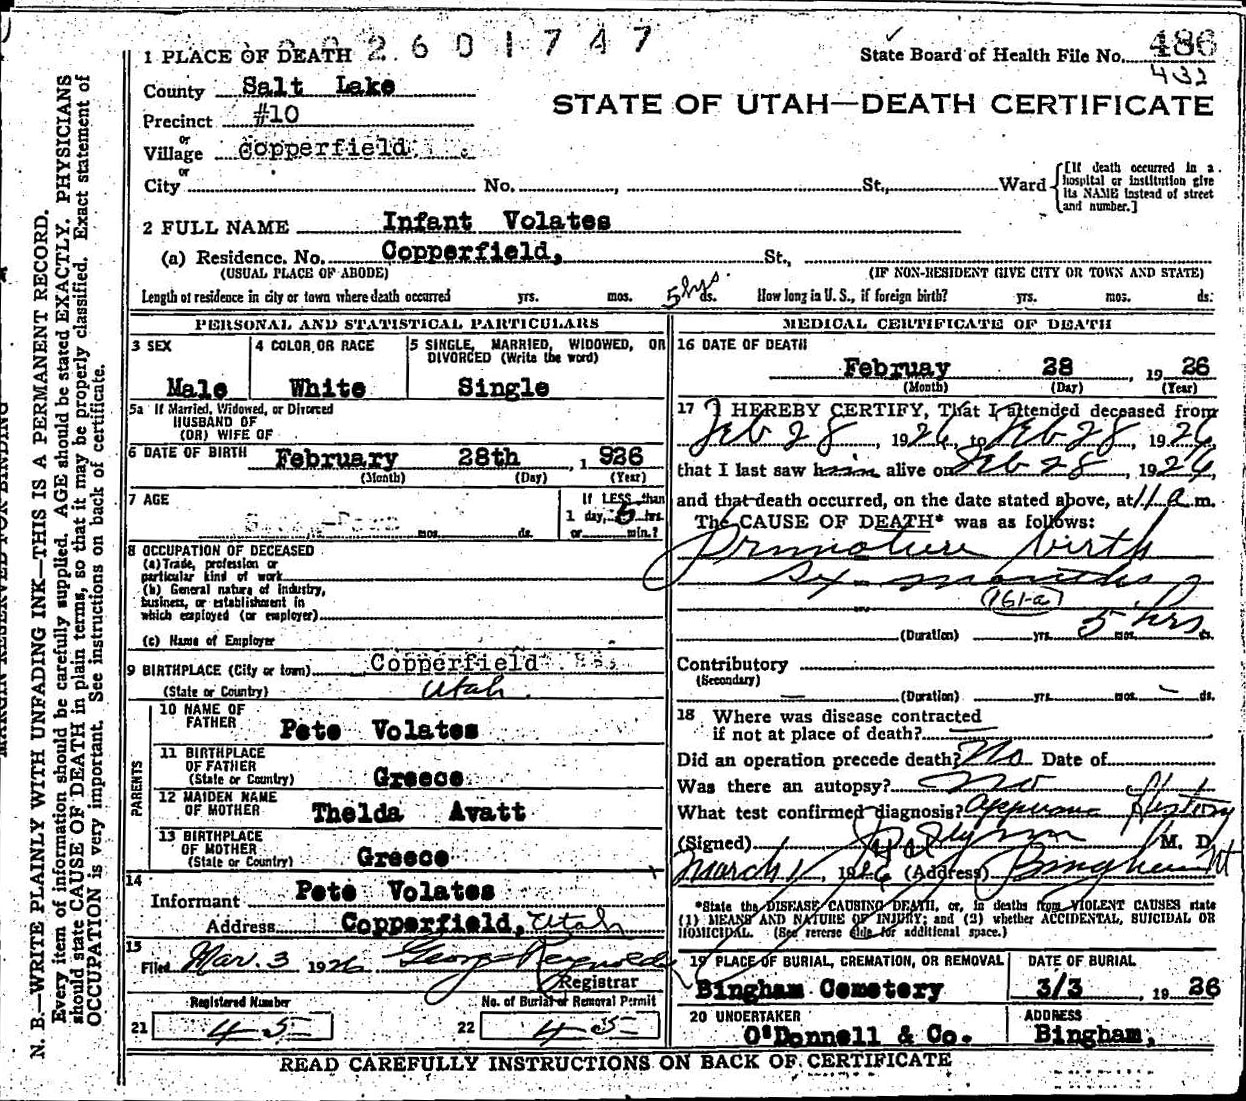 2601747
1 PLACE OF DEATH
State Board of Health File No. 486
432
County Salt Lake
STATE OF UTAH—DEATH CERTIFICATE
Precinct #10
or
Village Copperfield
or
City No. , St., Ward
[If death occurred in a hospital or institution give its NAME instead of street and number.]
2 FULL NAME Infant Volates
(a) Residence. No. Copperfield, St.,
(USUAL PLACE OF ABODE) (IF NON-RESIDENT GIVE CITY OR TOWN AND STATE)
Length of residence in city or town where death occurred yrs. mos. 5 hrs. ds. How long in U. S., if foreign birth? yrs. mos. ds.
PERSONAL AND STATISTICAL PARTICULARS
3 SEX
Male
4 COLOR OR RACE
White
5 SINGLE, MARRIED, WIDOWED, OR
DIVORCED (Write the word)
Single
5a If Married, Widowed, or Divorced
HUSBAND OF
(OR) WIFE OF
6 DATE OF BIRTH February 28th , 1 926
(Month) (Day) (Year)
7 AGE
mos. ds.
If LESS than
1 day, 5 hrs.
or min.?
8 OCCUPATION OF DECEASED
(a) Trade, profession or
particular kind of work
(b) General nature of industry,
business, or establishment in
which employed (or employer)
(c) Name of Employer
9 BIRTHPLACE (City or town) Copperfield
(State or Country) Utah.
PARENTS
10 NAME OF
FATHER Pete Volates
11 BIRTHPLACE
OF FATHER
(State or Country) Greece
12 MAIDEN NAME
OF MOTHER Thelda Avatt
13 BIRTHPLACE
OF MOTHER
(State or Country) Greece
14
Informant Pete Volates
Address Copperfield, Utah
15
Filed Mar. 3 1926 George Reynolds
Registrar
Registered Number
21 45
No. of Burial or Removal Permit
22 45
MEDICAL CERTIFICATE OF DEATH
16 DATE OF DEATH
Februay 28 , 19 26
(Month) (Day) (Year)
17 I HEREBY CERTIFY, That I attended deceased from
Feb 28 , 1926, to Feb 28 , 1926,
that I last saw him alive on Feb 28 , 1926,
and that death occurred, on the date stated above, at 11 a m.
The CAUSE OF DEATH* was as follows:
Prmnature birth
Six months
161-a
(Duration) yrs. 5 mos. hrs ds.
Contributory
(Secondary)
(Duration) yrs. mos. ds.
18 Where was disease contracted
if not at place of death?
Did an operation precede death? No Date of
Was there an autopsy? no
What test confirmed diagnosis? History
(Signed) M. D.
March 1, 1926 (Address) Bingham Ut
*State the DISEASE CAUSING DEATH, or, in deaths from VIOLENT CAUSES state
(1) MEANS AND NATURE OF INJURY; and (2) whether ACCIDENTAL, SUICIDAL OR
HOMICIDAL. (See reverse side for additional space.)
19 PLACE OF BURIAL, CREMATION, OR REMOVAL
Bingham Cemetery
DATE OF BURIAL
3/3 , 19 26
20 UNDERTAKER
O'Donnell & Co.
ADDRESS
Bingham,
READ CAREFULLY INSTRUCTIONS ON BACK OF CERTIFICATE
MARGIN RESERVED FOR BINDING
N. B.—WRITE PLAINLY WITH UNFADING INK—THIS IS A PERMANENT RECORD.
Every item of information should be carefully supplied. AGE should be stated EXACTLY. PHYSICIANS
should state CAUSE OF DEATH in plain terms, so that it may be properly classified. Exact statement of
OCCUPATION is very important. See instructions on back of certificate.